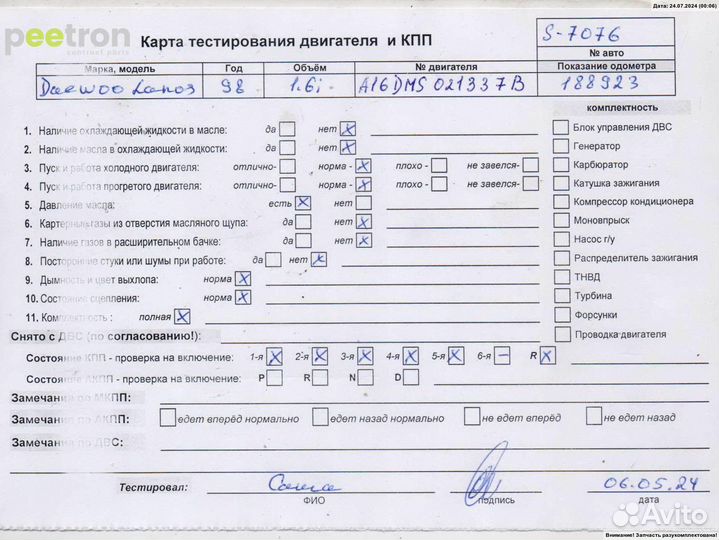 Дата: 24.07.2024 (00:06)
peetron
continet parts
Карта тестирования двигателя и КПП
S-7076
№ авто
Марка, модель Год Объём № двигателя Показание одометра
Daewoo Lanos 98 1.6i A16DMS 021337B 188923
комплектность
1. Наличие охлаждающей жидкости в масле: да нет X
Блок управления ДВС
2. Наличие масла в охлаждающей жидкости: да нет X
Генератор
3. Пуск и работа холодного двигателя: отлично- норма - X плохо - не завелся-
Карбюратор
4. Пуск и работа прогретого двигателя: отлично- норма - X плохо - не завелся-
Катушка зажигания
5. Давление масла: есть X нет
Компрессор кондиционера
6. Картерные газы из отверстия масляного щупа: да нет X
Моновпрыск
7. Наличие газов в расширительном бачке: да нет X
Насос г/у
8. Посторонние стуки или шумы при работе: да нет X
Распределитель зажигания
9. Дымность и цвет выхлопа: норма X
ТНВД
10. Состояние сцепления: норма X
Турбина
11. Комплектность : полная X
Форсунки
Снято с ДВС (по согласованию!):
Проводка двигателя
Состояние КПП - проверка на включение: 1-я X 2-я X 3-я X 4-я X 5-я X 6-я – R X
Состояние АКПП - проверка на включение: P R N D
Замечания по МКПП:
Замечания по АКПП: едет вперёд нормально едет назад нормально не едет вперёд не едет назад
Замечания по ДВС:
Тестировал: Саша 06.05.24
ФИО подпись дата
Avito
Внимание! Запчасть разукомплектована!